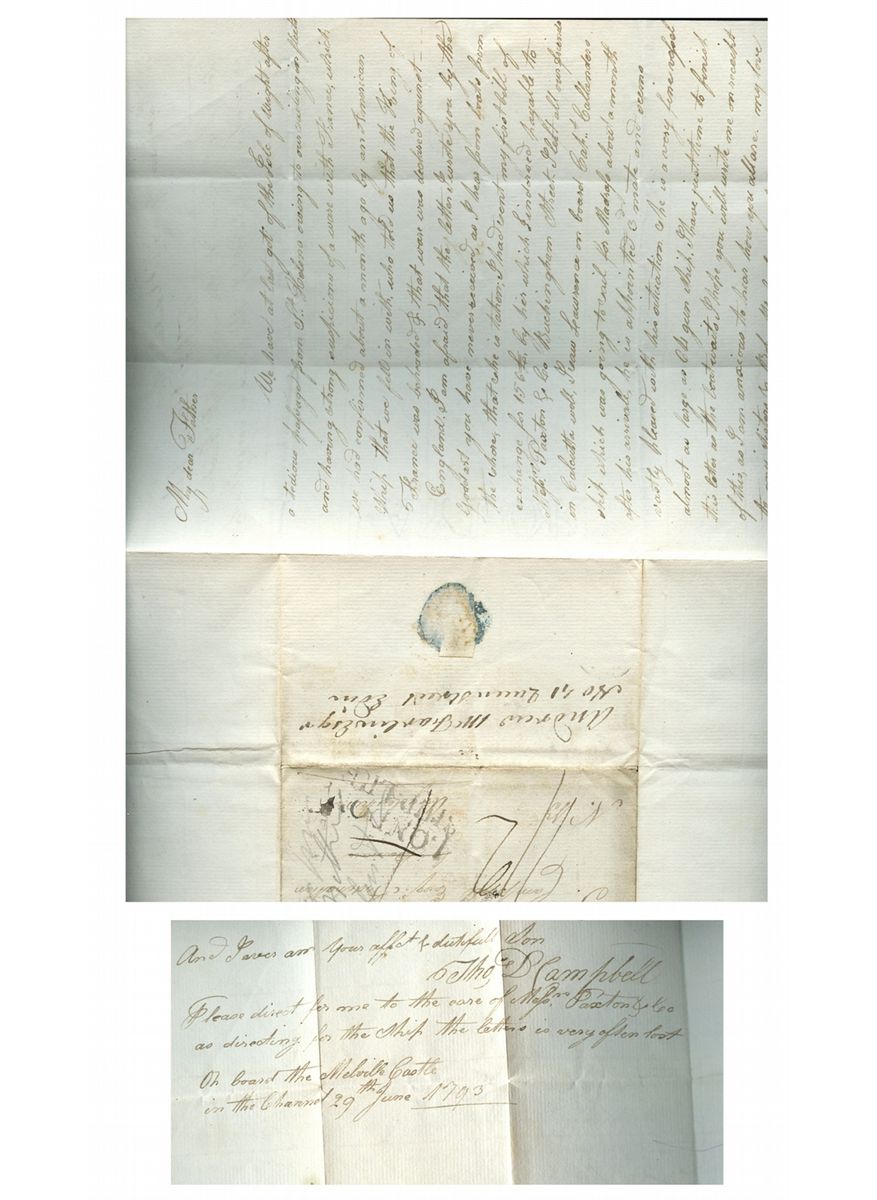 My dear Father
We have at last got of the Isle of Wight after
a tedious Passage from St. Helena owing to our cruizing in
and having strong suspicions of a warr with France, which
we had confirmed about a month ago by an American
Ship that we fell in with, who told us that the King of
France was beheaded & that warr was declared against
England. I am afraid that the letter I wrote you by the
you have never received, as I hear from boats from
the shore, that she is taken, I had sent my first bill of
exchange for by her which I indorsed payable to
Messrs. Paxton & Co Buckingham Street. I left all our friends
in Calcutta well, I saw Lawrence on board Captn. Callenders
ship which was going to sail for Madrass about a month
after his arrival, he is appointed 3d mate and seems
vastly pleased with his situation she is a very fine vessel
almost as large as 64 gun ship. I have just time to finish
this letter as the boat waits, I hope you will write me on receipt
of this, as I am anxious to hear how you all are. my love
Andrew McFarlin Esqr
No 41 Queenstreet Edinr
LONDON
And I ever am Your affct & dutifull Son
Thos D Campbell
Please direct for me to the care of Messrs. Paxton & Co
as directing for the Ship the letters is very often lost
On board the Melville Castle
in the Channel 29th June 1793